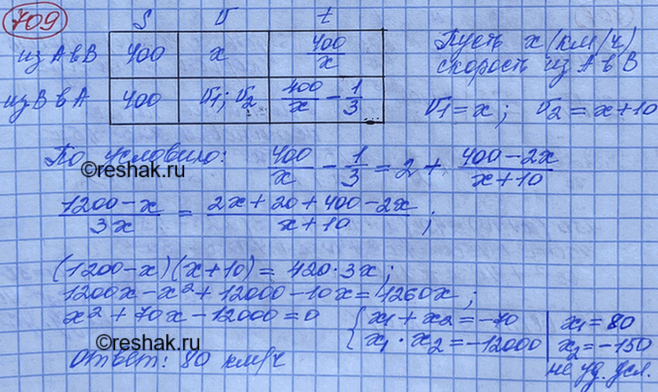 709
S | V | t
из A в B | 400 | x | 400/x
из B в A | 400 | V1; V2 | 400/x − 1/3
Пусть x (км/ч)
скорость из A в B
V1 = x ; V2 = x+10
По условию: 400/x − 1/3 = 2 + (400−2x)/(x+10)
©reshak.ru
(1200−x)/3x = (2x+20+400−2x)/(x+10) ;
(1200−x)(x+10) = 420·3x ;
1200x−x²+12000−10x=1260x ;
x²+70x−12000=0 { x1+x2=−70 | x1=80
x1·x2=−12000 | x2=−150
не уд. усл.
Ответ: 80 км/ч
©reshak.ru